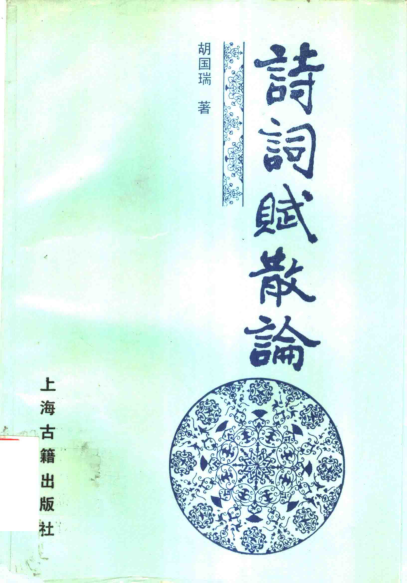 詩詞賦散論
胡国瑞 著
上海古籍出版社